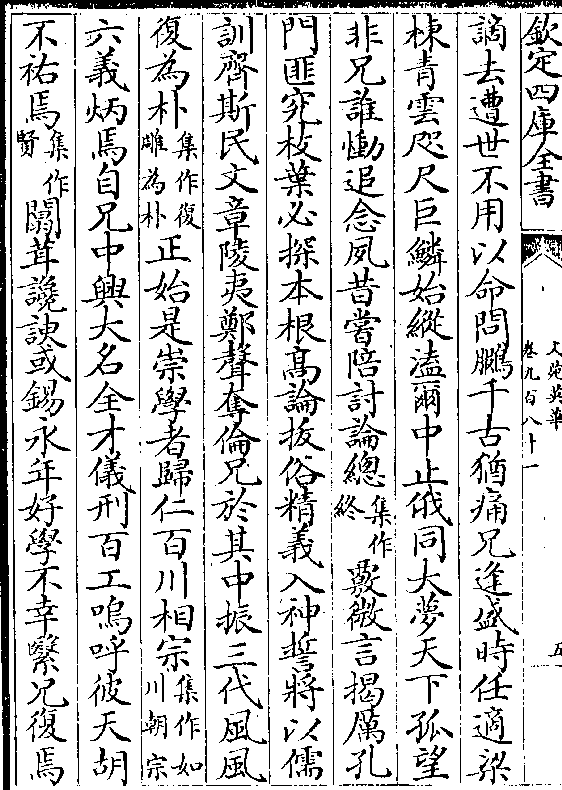 欽定四庫全書
文苑英華
卷九百八十一
五
謫去遭世不用以命問鵩千古猶痛兄逢盛時任適梁
棟青雲咫尺巨鱗始縱溘爾中止俄同大夢天下孤望
非兄誰慟追念夙昔嘗陪討論總集作終覈微言揭厲孔
門匪究枝葉必探本根高論拔俗精義入神誓將以儒
訓齊斯民文章陵夷鄭聲奪倫兄於其中振三代風風
復為朴集作復雕為朴正始是崇學者歸仁百川相宗集作如川朝宗
六義炳焉自兄中興大名全才儀刑百工嗚呼彼天胡
不祐焉集作賢闒茸讒諛或錫永年好學不幸緊兄復焉